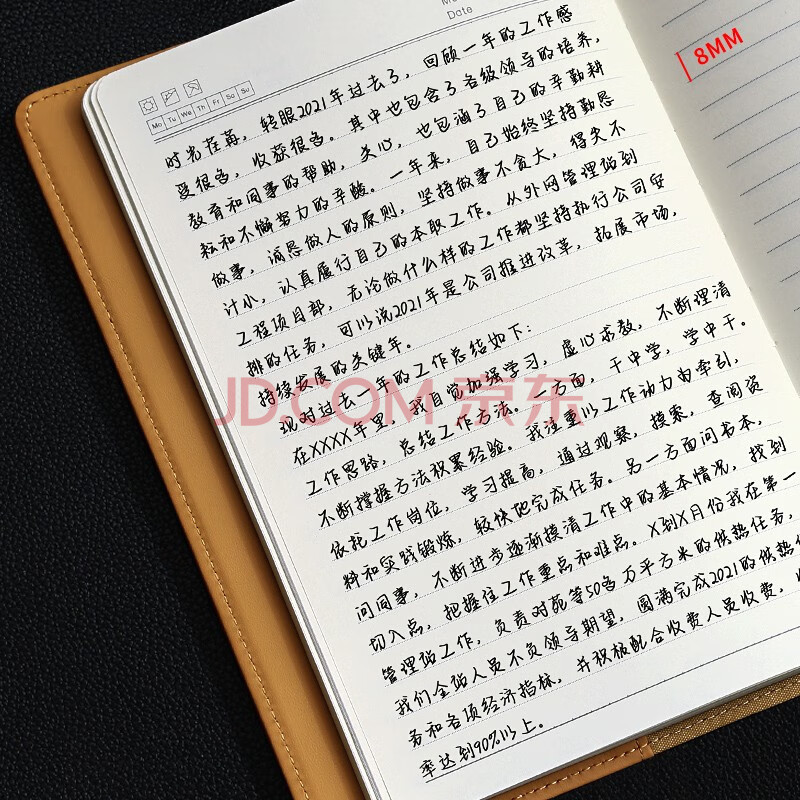 Date
8MM
Mo Tu We Th Fr Sa Su
时光荏苒，转眼2021年过去了，回顾一年的工作感
受很多，收获很多。其中也包含了各级领导的培养，
教育和同事的帮助，关心，也包涵了自己的辛勤耕
耘和不懈努力的辛酸。一年来，自己始终坚持勤恳
做事，诚恳做人的原则，坚持做事不贪大，得失不
计小，认真履行自己的本职工作。从外网管理站到
工程项目部，无论做什么样的工作都坚持执行公司安
排的任务，可以说2021年是公司推进改革，拓展市场，
持续发展的关键年。
现对过去一年的工作总结如下：
在XXXX年里，我自觉加强学习，虚心求教，不断理清
工作思路，总结工作方法。一方面，干中学，学中干。
不断掌握方法积累经验。我注重以工作动力为牵引，
依托工作岗位，学习提高，通过观察，摸索，查阅资
料和实践锻炼，较快地完成任务。另一方面问书本，
问同事，不断进步逐渐摸清工作中的基本情况，找到
切入点，把握住工作重点和难点。X到X月份我在第一
管理站工作，负责对苑等50多万平方米的供热任务，
我们全站人员不负领导期望，圆满完成2021的供热任
务和各项经济指标，并积极配合收费人员收费，
率达到90%以上。
JD.COM 京东